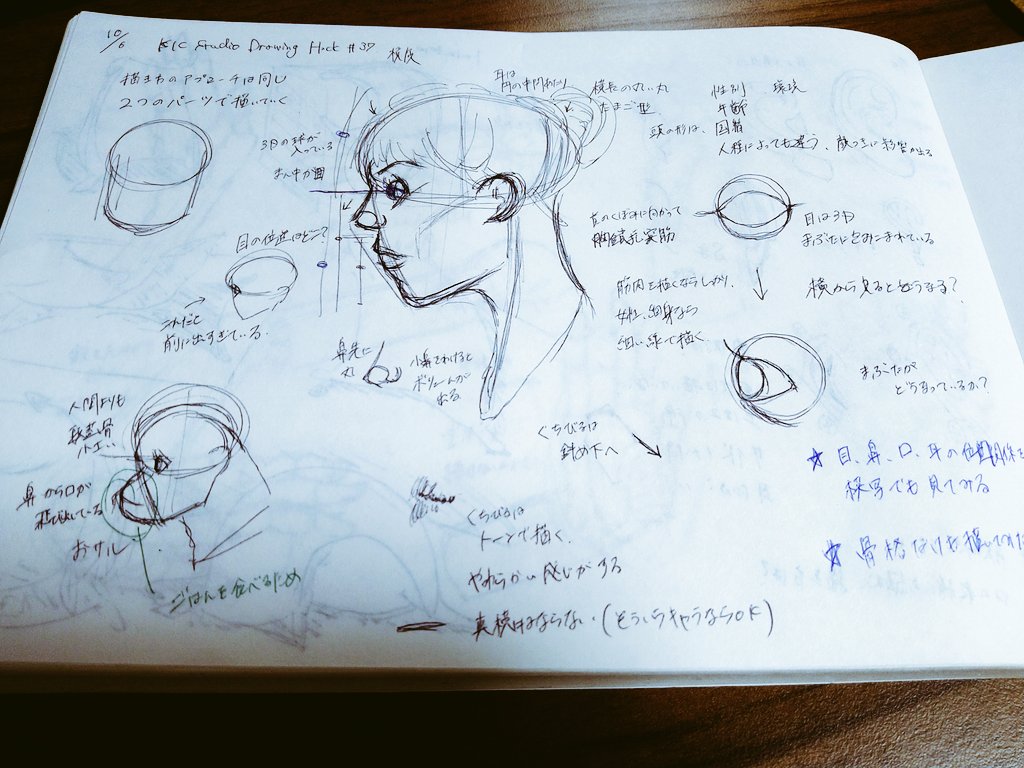 10/6 KIC Studio Drawing Hack #37 横顔
描き方のアプローチは同じ
2つのパーツで描いていく
3Dの球が
入っている
まん中が目
目の位置はどこ?
これだと
前に出すぎている。
耳は
円の中間あたり
横長の丸い丸
たまご型
頭の形は、
性別 環境
年齢
国籍
人種によっても違う、顔つきに影響が出る
首のくぼみに向かって
胸鎖乳突筋
筋肉を描くならしっかり、
女性、細身なら
細い線で描く
目は3D
まぶたに包みこまれている
横から見るとどうなる?
まぶたが
どうなっているか?
鼻先に
丸
小鼻をわけると
ボリュームが
出る
くちびるは
斜め下へ
人間よりも
頭蓋骨
小さい
鼻から口が
おサル
ごはんを食べるため
くちびるは
トーンで描く。
やわらかい感じがする
真横にはならない(そういうキャラならOK)
★目、鼻、口、耳の位置関係を
模写でも見てみる
★骨格だけを描いて